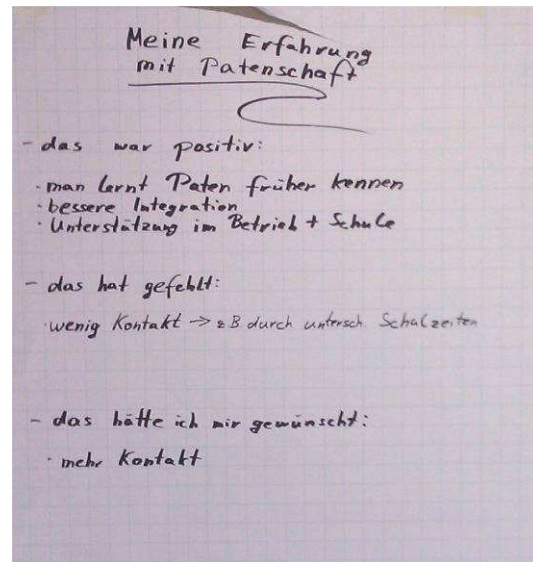 Meine Erfahrung
mit Patenschaft
- das war positiv:
· man lernt Paten früher kennen
· bessere Integration
· Unterstützung im Betrieb + Schule
- das hat gefehlt:
· wenig Kontakt → z B durch untersch. Schulzeiten
- das hätte ich mir gewünscht:
· mehr Kontakt